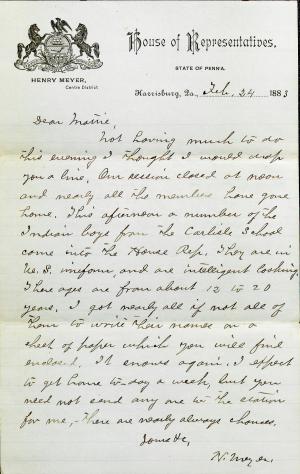 House of Representatives,
STATE OF PENN'A.
HENRY MEYER,
Centre District
Harrisburg, Pa., Feb. 24 1883
Dear Mattie,
Not having much to do
this evening I thought I would drop
you a line. Our session closed at noon
and nearly all the members have gone
home. This afternoon a number of the
Indian boys from the Carlisle School
come into the House Rep. They are in
U.S. uneform, and are intelligent looking.
There ages are from about 12 to 20
years. I got nearly all if not all of
them to write their names on a
sheet of paper which you will find
enclosed. It snows again. I expect
to get home to-day a week, but you
need not send any one to the station
for me, there are nearly always chances.
Yours &c,
H. Meyer.